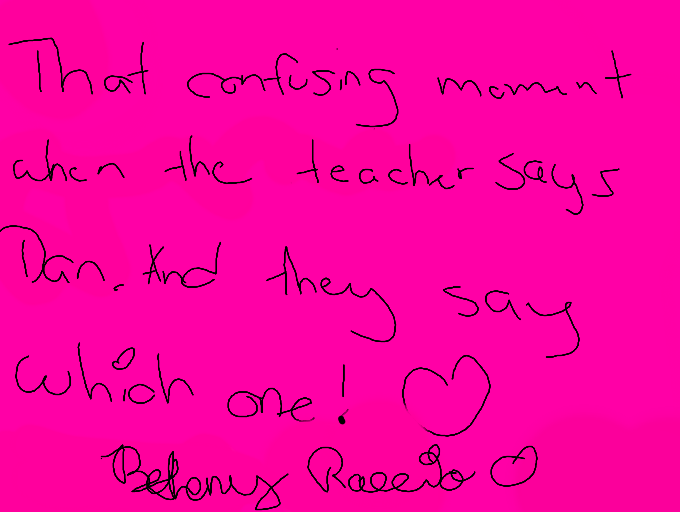 That confusing moment
when the teacher says
Dan. And they say
which one!
Bethany